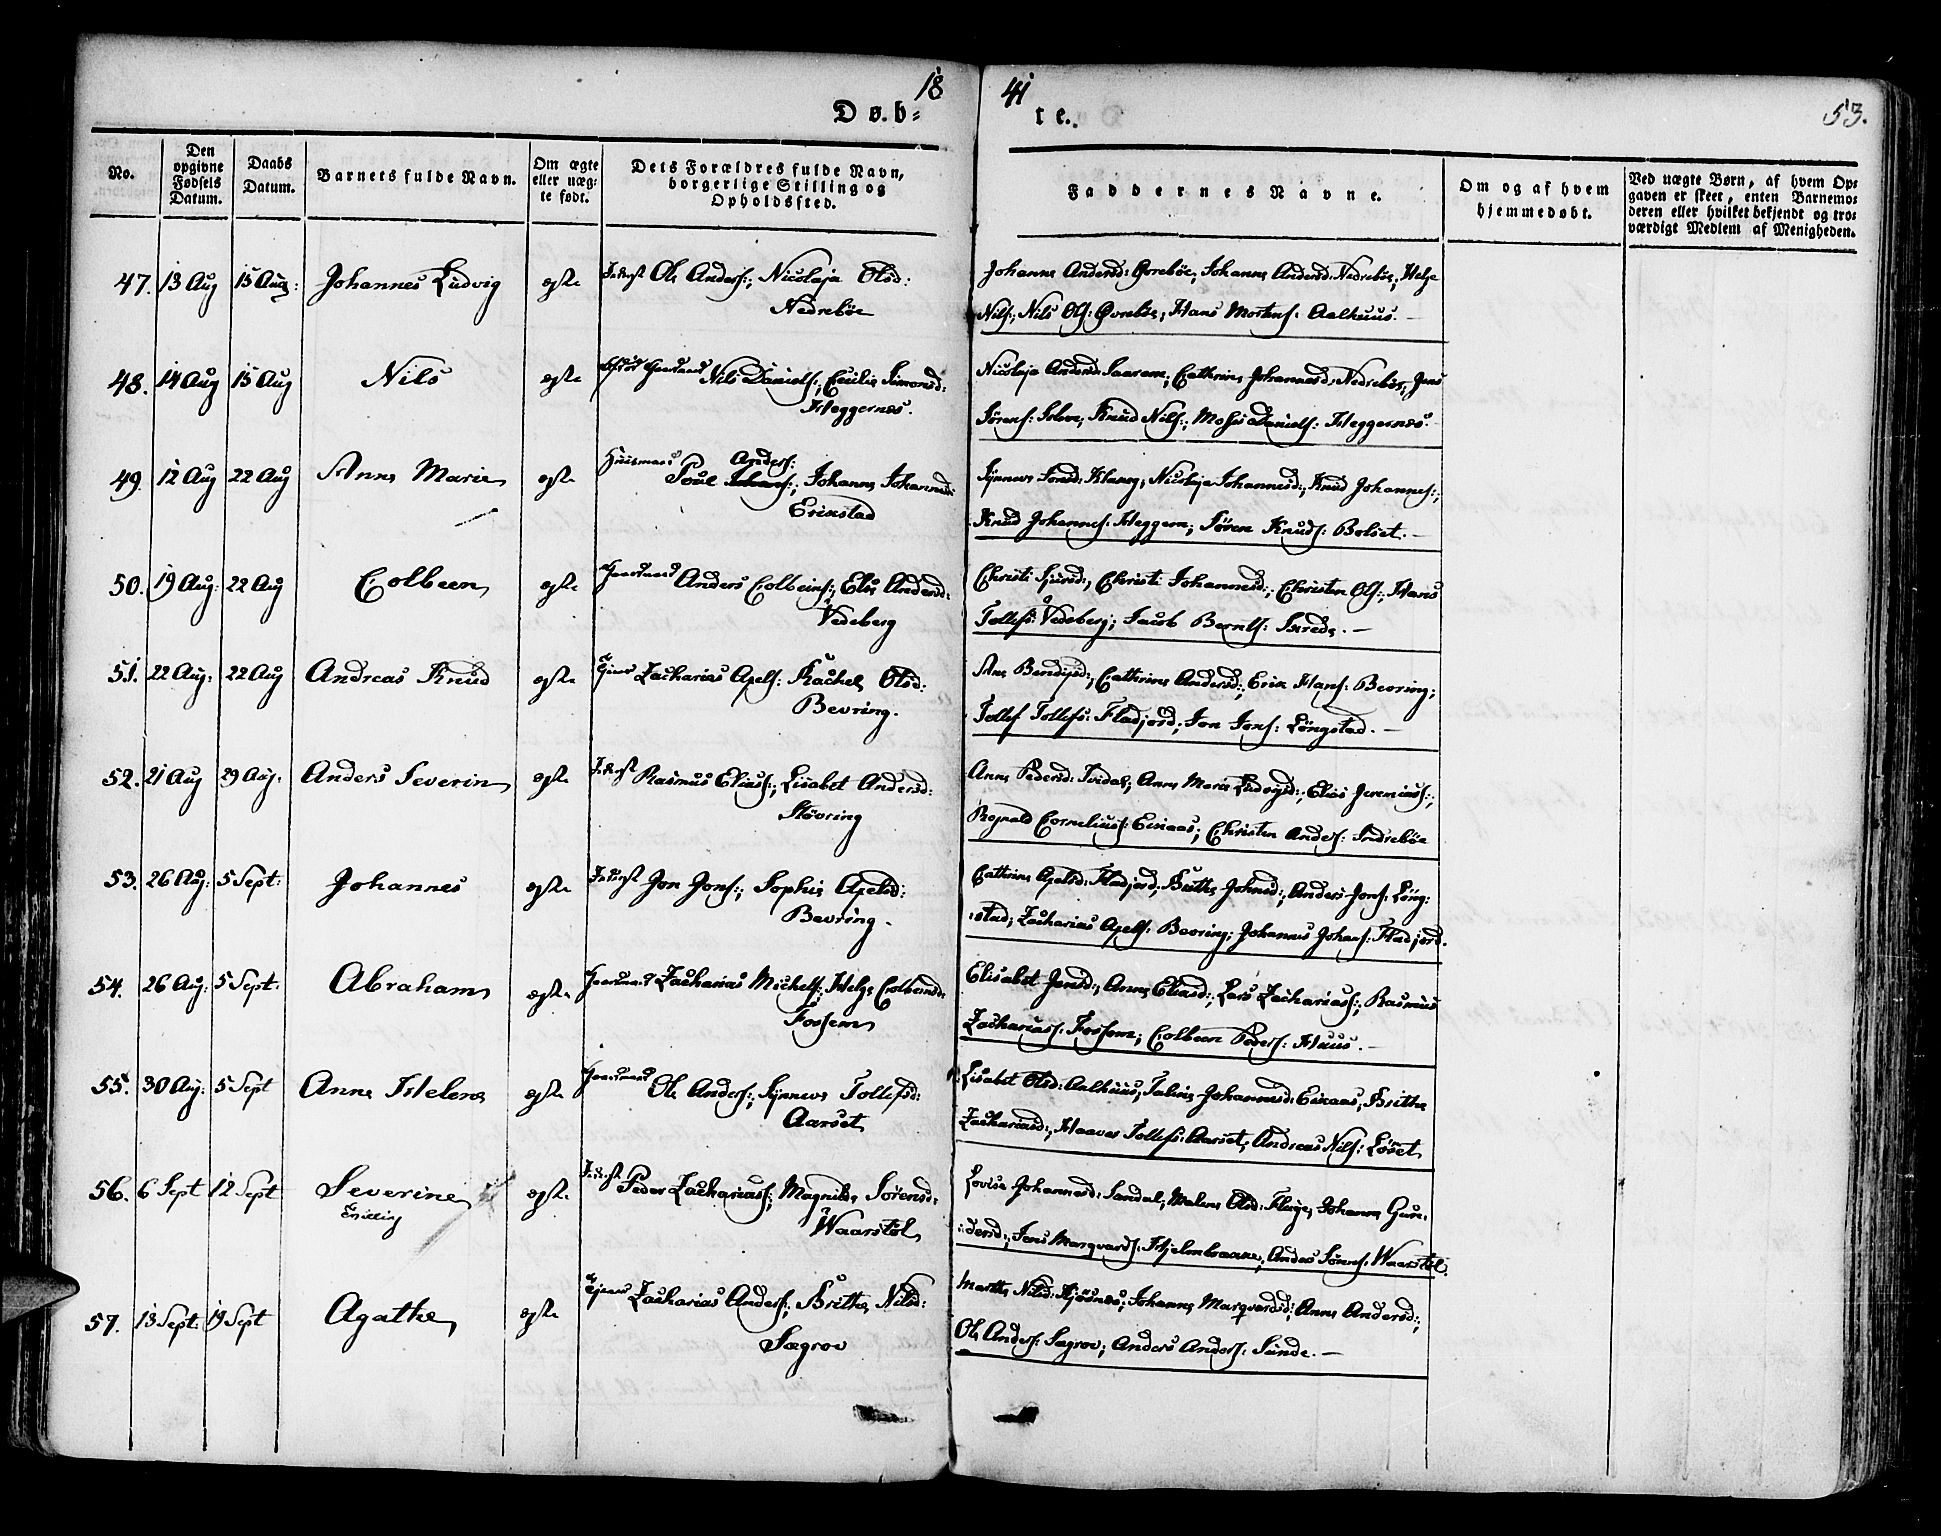 18 41
Døb- te.
53.
No.
Den opgivne Fødsels Datum.
Daabs Datum.
Barnets fulde Navn.
Om ægte eller uæg- te født.
Dets Forældres fulde Navn, borgerlige Stilling og Opholdssted.
Faddernes Navne.
Om og af hvem hjemmedøbt.
Ved uægte Børn, af hvem Op- gaven er skeet, enten Barnemo- deren eller hvilket bekjendt og tro- værdigt Medlem af Menigheden.
47. 13 Aug 15 Aug: Johannes Ludvig egte Inderst Ole Anders:, Nicolaja Olsd:
Nedrebøe
Johanne Andersd: Øvrebøe, Johanne Andersd: Nedrebøe, Helge
Nils:, Nils Ols: Øvrebøe, Hans Mortens: Aalhuus.
48. 14 Aug 15 Aug Nils egte Gaardmand Nils Daniels:, Cecilie Simonsd:
Heggernes.
Nicolaja Andersd: Cathrine Johannesd: Nedrebøe, Jens
Sørens: Knud Nils:, Moses Daniels: Heggernes.
49. 12 Aug 22 Aug Anne Marie egte Huusmand Poul Anders:, Johanne Johannesd:
Erikstad
Synneve Nicolaja Johannesd:, Knud Johannes:,
Knud Johannes: Heggem, Søren Knuds: Bolset.
50. 19 Aug: 22 Aug Colbeen egte Gaardmand Anders Colbeins:, Else Andersd:
Vedeberg
Christi Sjursd:, Christi Johannesd:, Christen Ols:, Hans
Tollefs: Vedeberg, Jacob Bernts: Skrede.
51. 22 Aug. 22 Aug Andreas Knud egte Zacharias Apels: Rachel Olsd:
Bevring.
Ane Bendixd:, Cathrine Andersd:, Erik Hans: Bevring;
Tollef Tollefs: Fladjord, Jon Jons: Longstad.
52. 21 Aug 29 Aug. Anders Severin egte Inderst Rasmus Elias:, Lisabet Andersd:
Støvring
Anne Pedersd: Anne Marie Elias Jeremias:,
Rognald Cornelius: Eikaas; Christen Anders: Indrebøe
53. 26 Aug: 5 Sept: Johannes egte Inderst Jon Jons:, Sophie Apelsd:
Bevring.
Cathrine Apelsd: Fladjord, Brithe Johnsd:, Anders Jons: Long-
stad, Zacharias Apels: Bevring; Johannes Johans: Fladjord.
54. 26 Aug: 5 Sept: Abraham egte Gaardmand Zacharias Michels:, Helge Colbensd:
Fossem
Elisabet Jensd:, Anne Eliasd:, Lars Zacharias:, Rasmus
Zacharias: Fossem, Colbeen Peders: Huus.
55. 30 Aug: 5 Sept Anne Helene egte Gaardmand Ole Anders:, Synneve Tollefsd:
Aarset
Lisabet Olsd: Aalhuus, Taline Johannesd: Eikaas, Brithe
Zachariasd:, Haavar Tollefs: Aarset, Andreas Nils: Løset
56. 6 Sept 12 Sept Severine egte Inderst Peder Zacharias:, Magnilde Sørensd:
Tvilling
Waarstøl
Lovise Johannesd: Sandal, Malene Olsd: Fluge, Johanne Gun-
dersd:, Jens Marqvards: Hjelmbrække, Anders Sørens: Waarstøl.
57. 13 Sept: 19 Sept Agathe egte Zacharias Anders:, Brithe Nilsd:
Sægrov
Marthe Nilsd: Hjøsnes, Johanne Marqvardsd: Anne Andersd:,
Ole Anders: Sægrov, Anders Anders: Sunde.